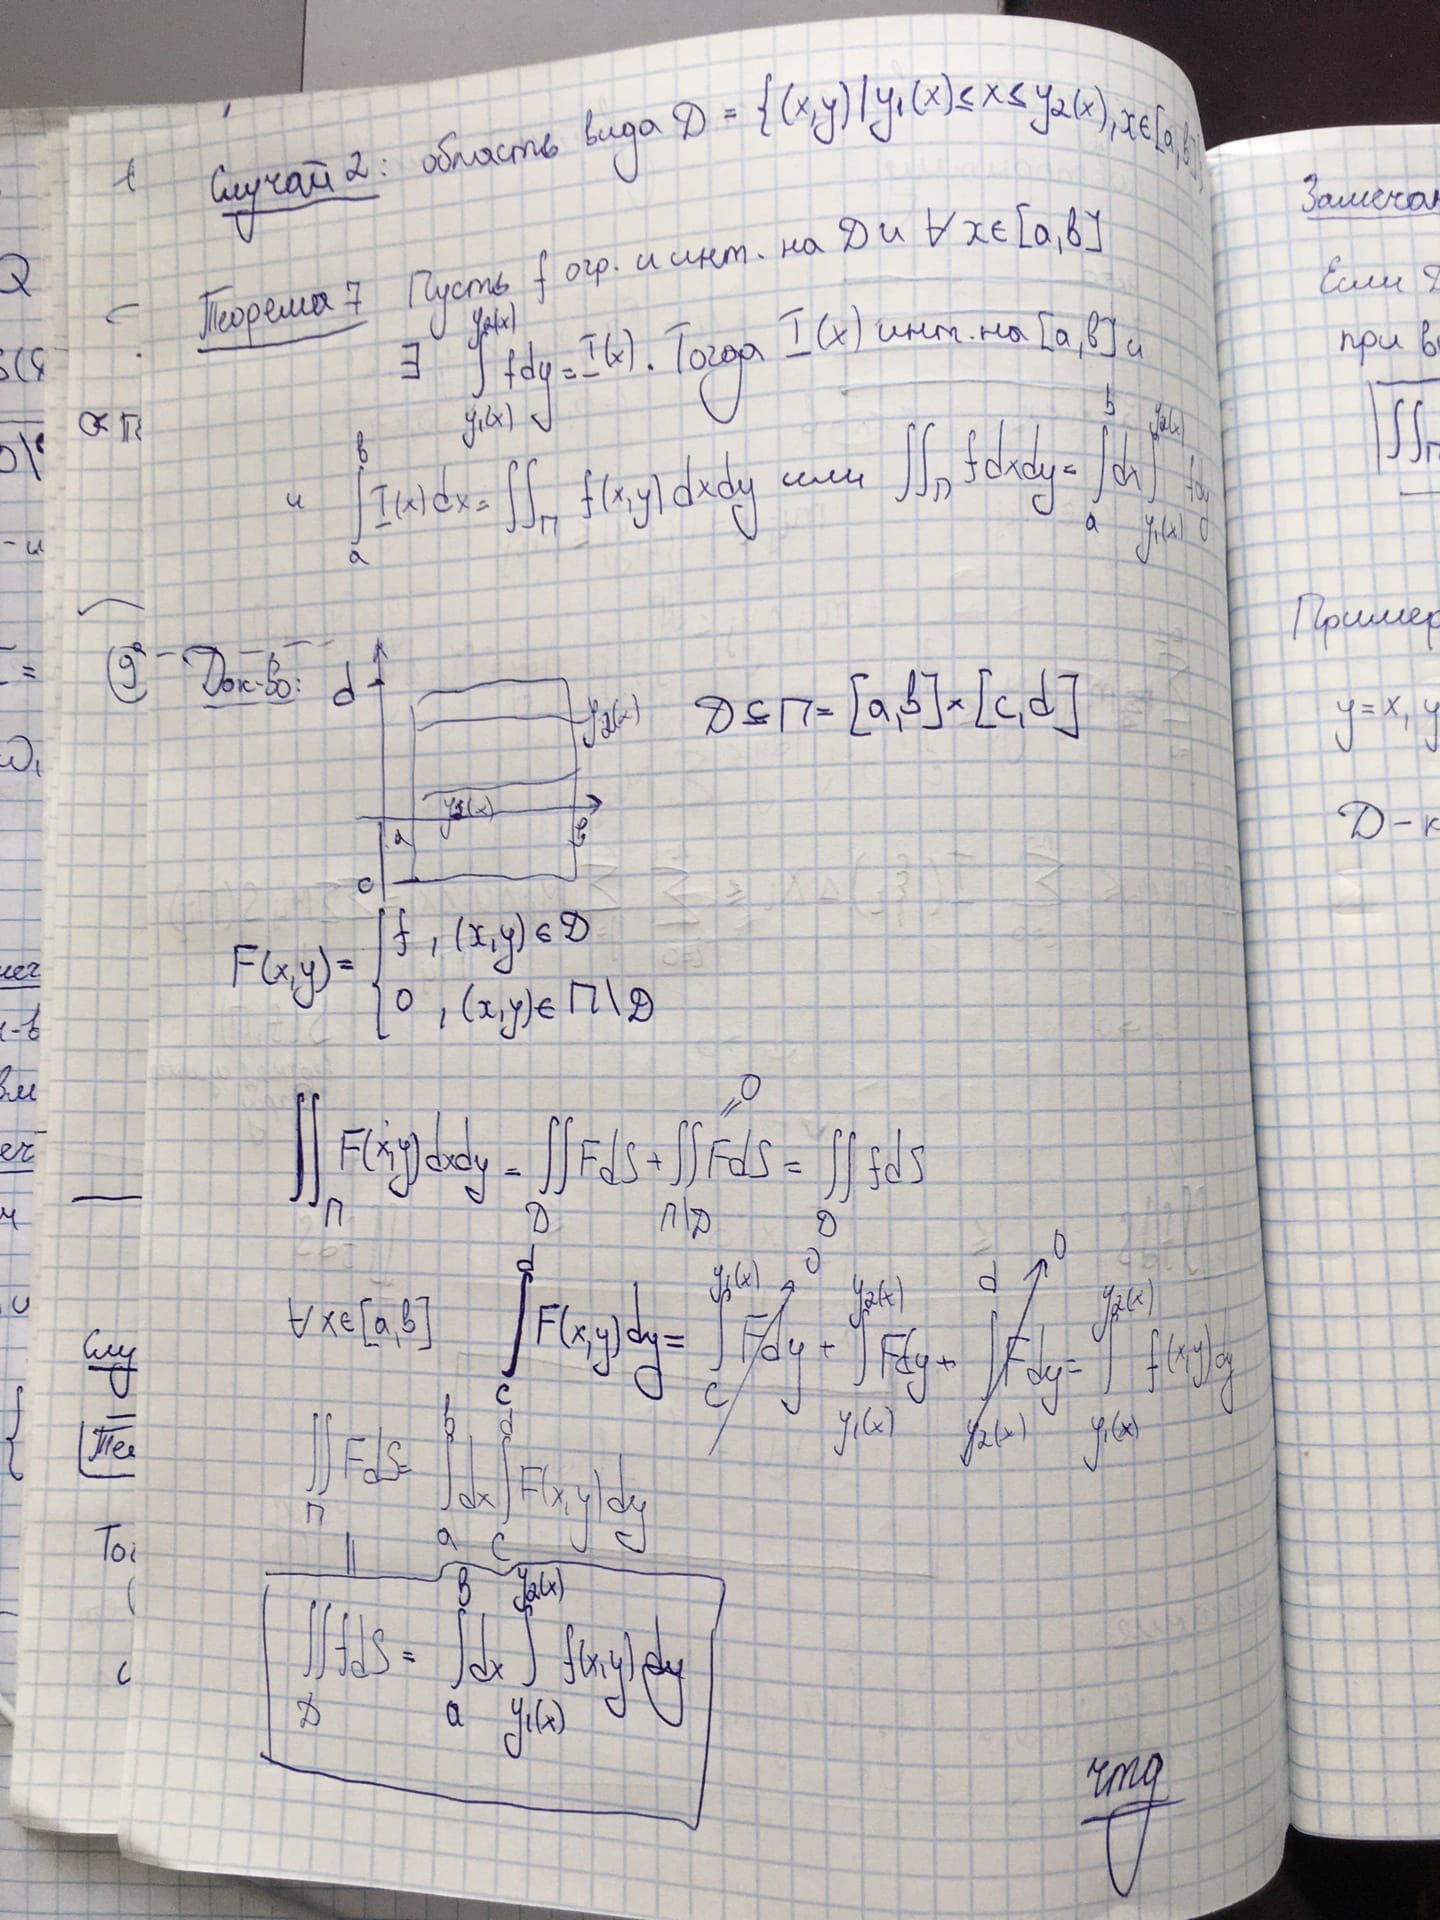 Случай 2: область вида D = {(x,y) | y₁(x) ≤ x ≤ y₂(x), x∈[a,b]}
Теорема 7 Пусть f огр. и инт. на D и ∀ x∈[a,b]
∃ ∫_{y₁(x)}^{y₂(x)} fdy = I(x). Тогда I(x) инт. на [a,b] и
и ∫_a^b I(x)dx = ∬_П f(x,y)dxdy или ∬_П fdxdy = ∫_a^b dx ∫_{y₁(x)}^{y₂(x)} fdy
Док-во:
d
y₂(x)
D ⊆ П = [a,b]×[c,d]
y₁(x)
a
b
c
F(x,y) = { f, (x,y)∈D
0, (x,y)∈П\D
∬_П F(x,y)dxdy = ∬_D FdS + ∬_{П\D} FdS = ∬_D fdS
=0
∀ x∈[a,b] ∫_c^d F(x,y)dy = ∫_c^{y₁(x)} Fdy + ∫_{y₁(x)}^{y₂(x)} Fdy + ∫_{y₂(x)}^d Fdy = ∫_{y₁(x)}^{y₂(x)} f(x,y)dy
0
0
∬_П FdS = ∫_a^b dx ∫_c^d F(x,y)dy
||
∬_D fdS = ∫_a^b dx ∫_{y₁(x)}^{y₂(x)} f(x,y)dy
чтд
Если
при
∬_П
Пример
y=x, y
D – к